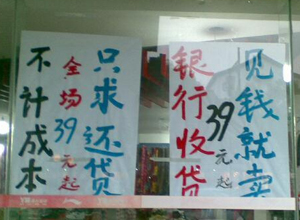 见钱就卖
39元起
银行收贷
只求还贷
全场39元起
不计成本